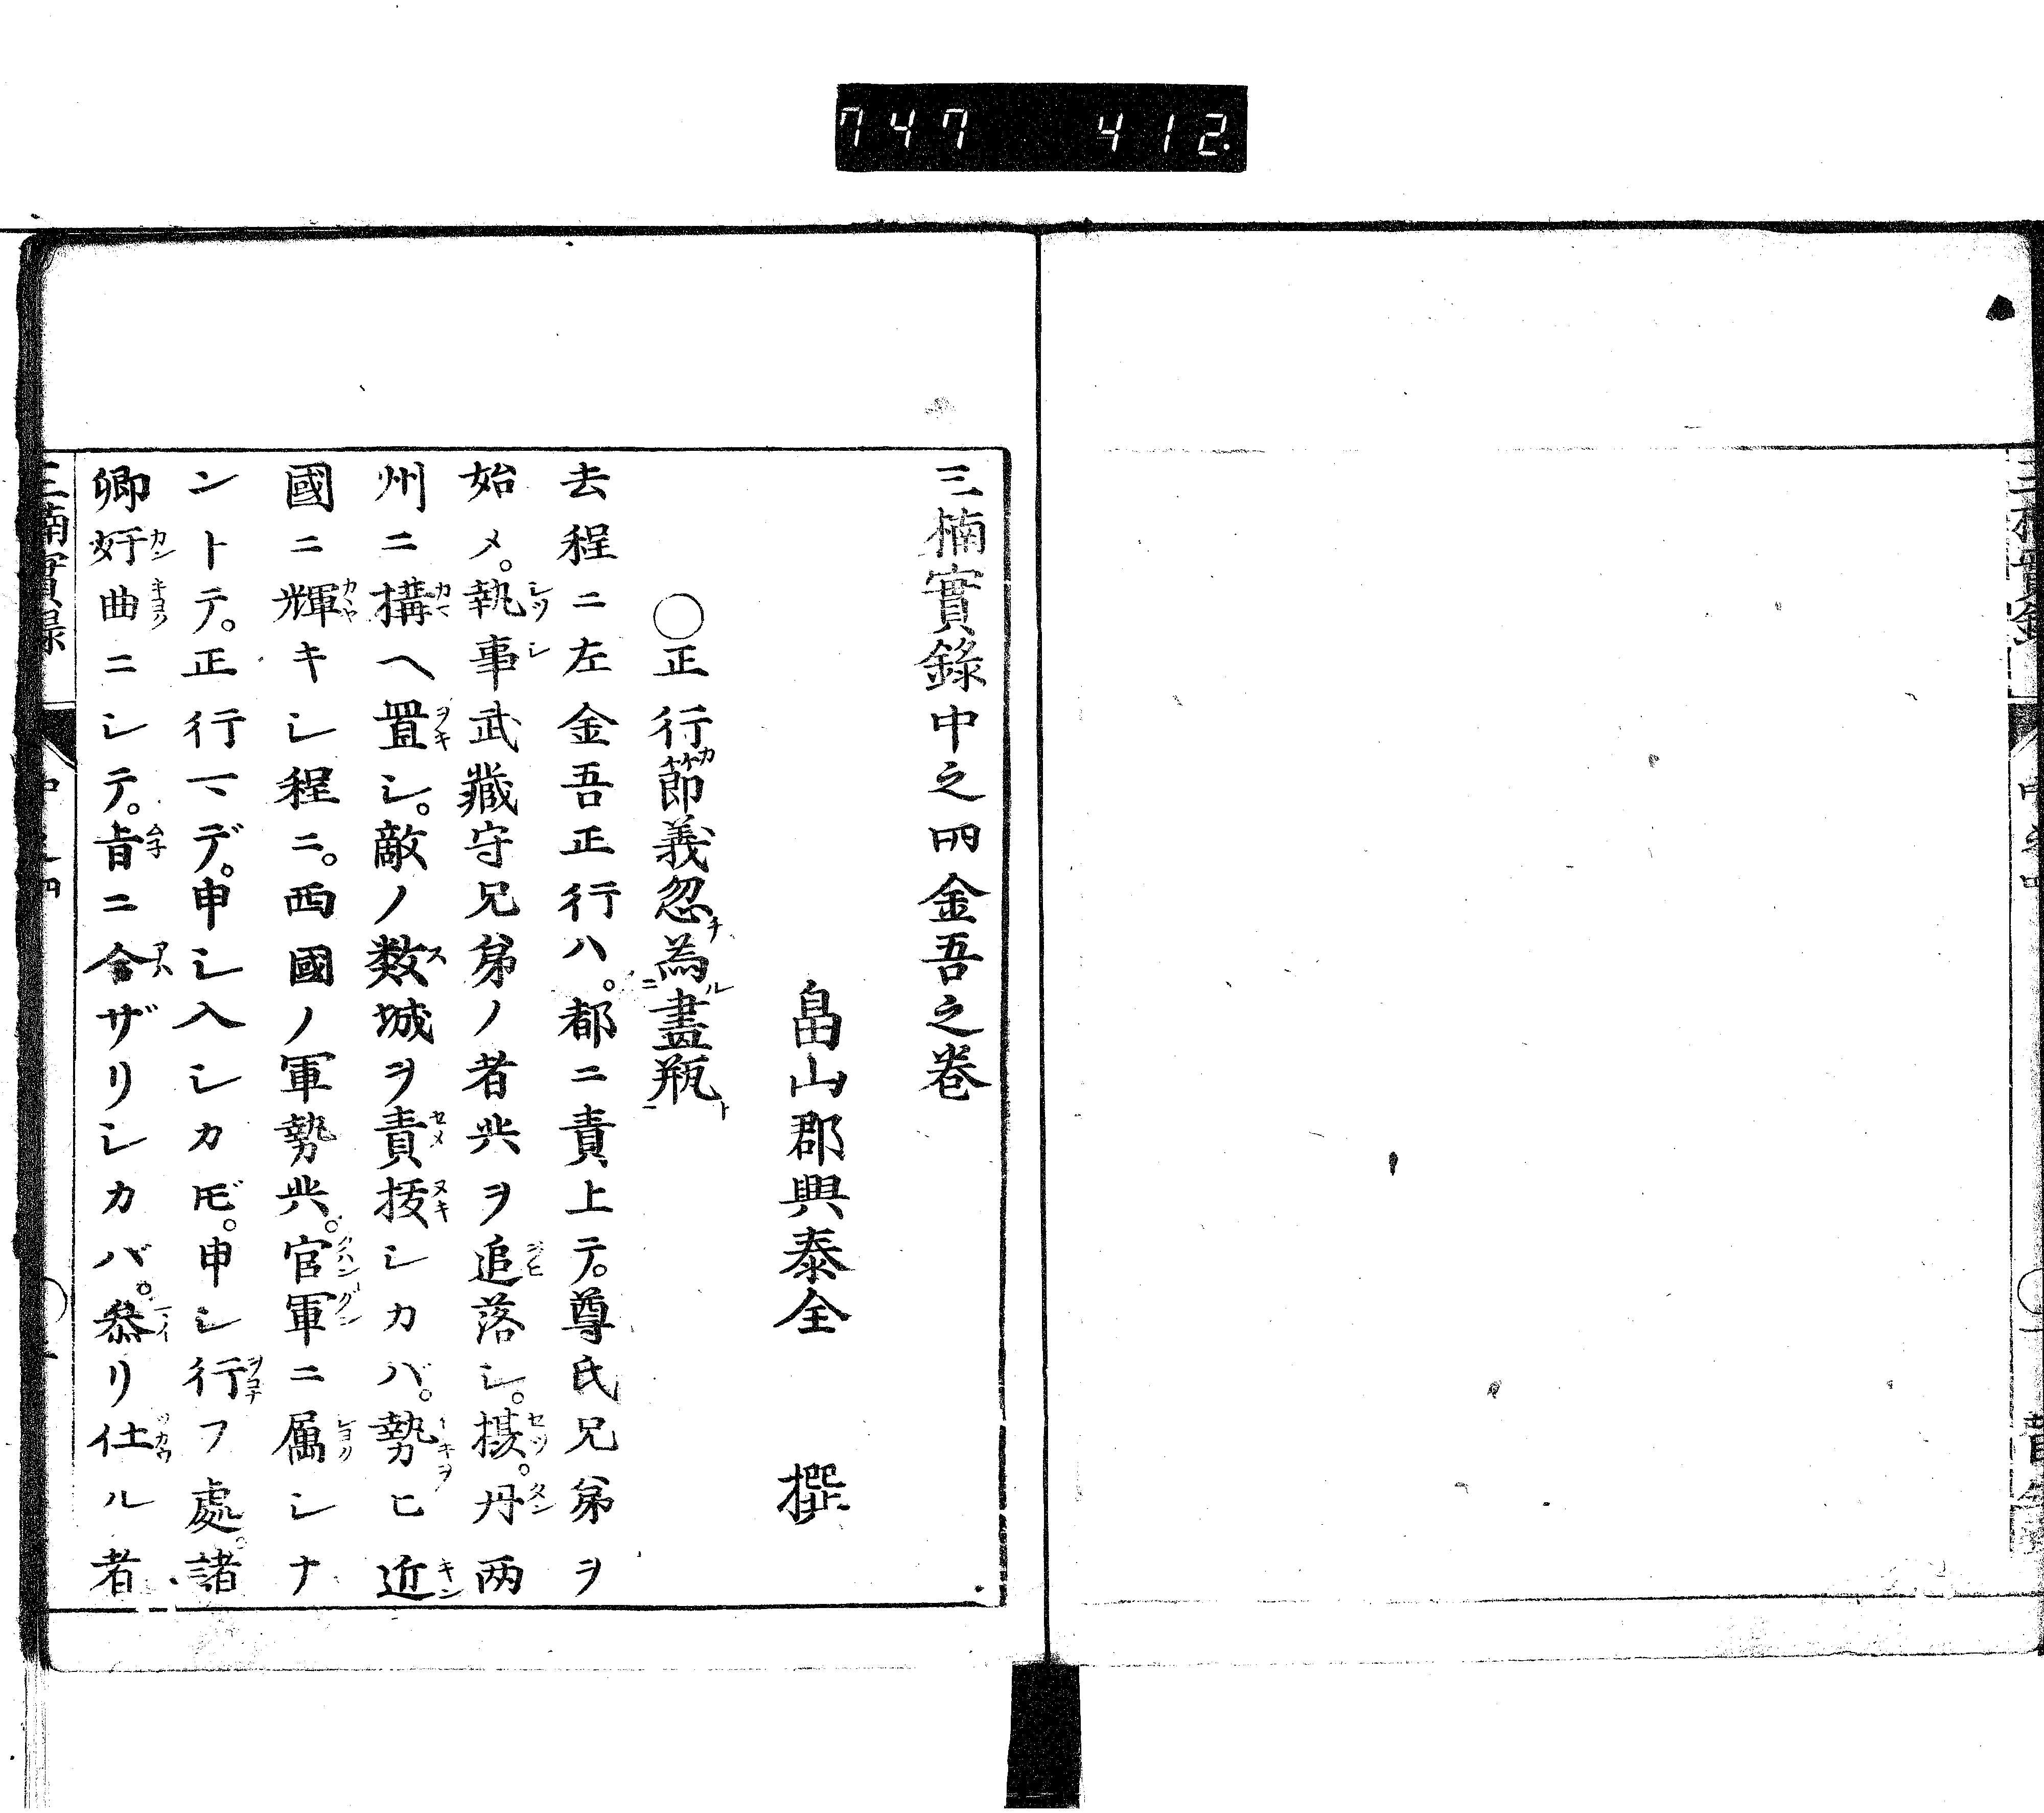 747 412.
三楠實錄中之四 金吾之巻
畠山郡興泰全 撰
○正行節義忽為畫瓶
去程ニ左金吾正行ハ。都ニ責上テ。尊氏兄弟ヲ
始メ。執事武藏守兄弟ノ者共ヲ追落シ。摂。丹兩
州ニ構ヘ置シ。敵ノ数城ヲ責抜シカバ。勢ヒ近
國ニ輝キシ程ニ。西國ノ軍勢共。官軍ニ属シナ
ントテ。正行マデ。申シ入シカ𪜈。申シ行フ處。諸
卿奸曲ニシテ。旨ニ合ザリシカバ。叅リ仕ル者
三楠實録